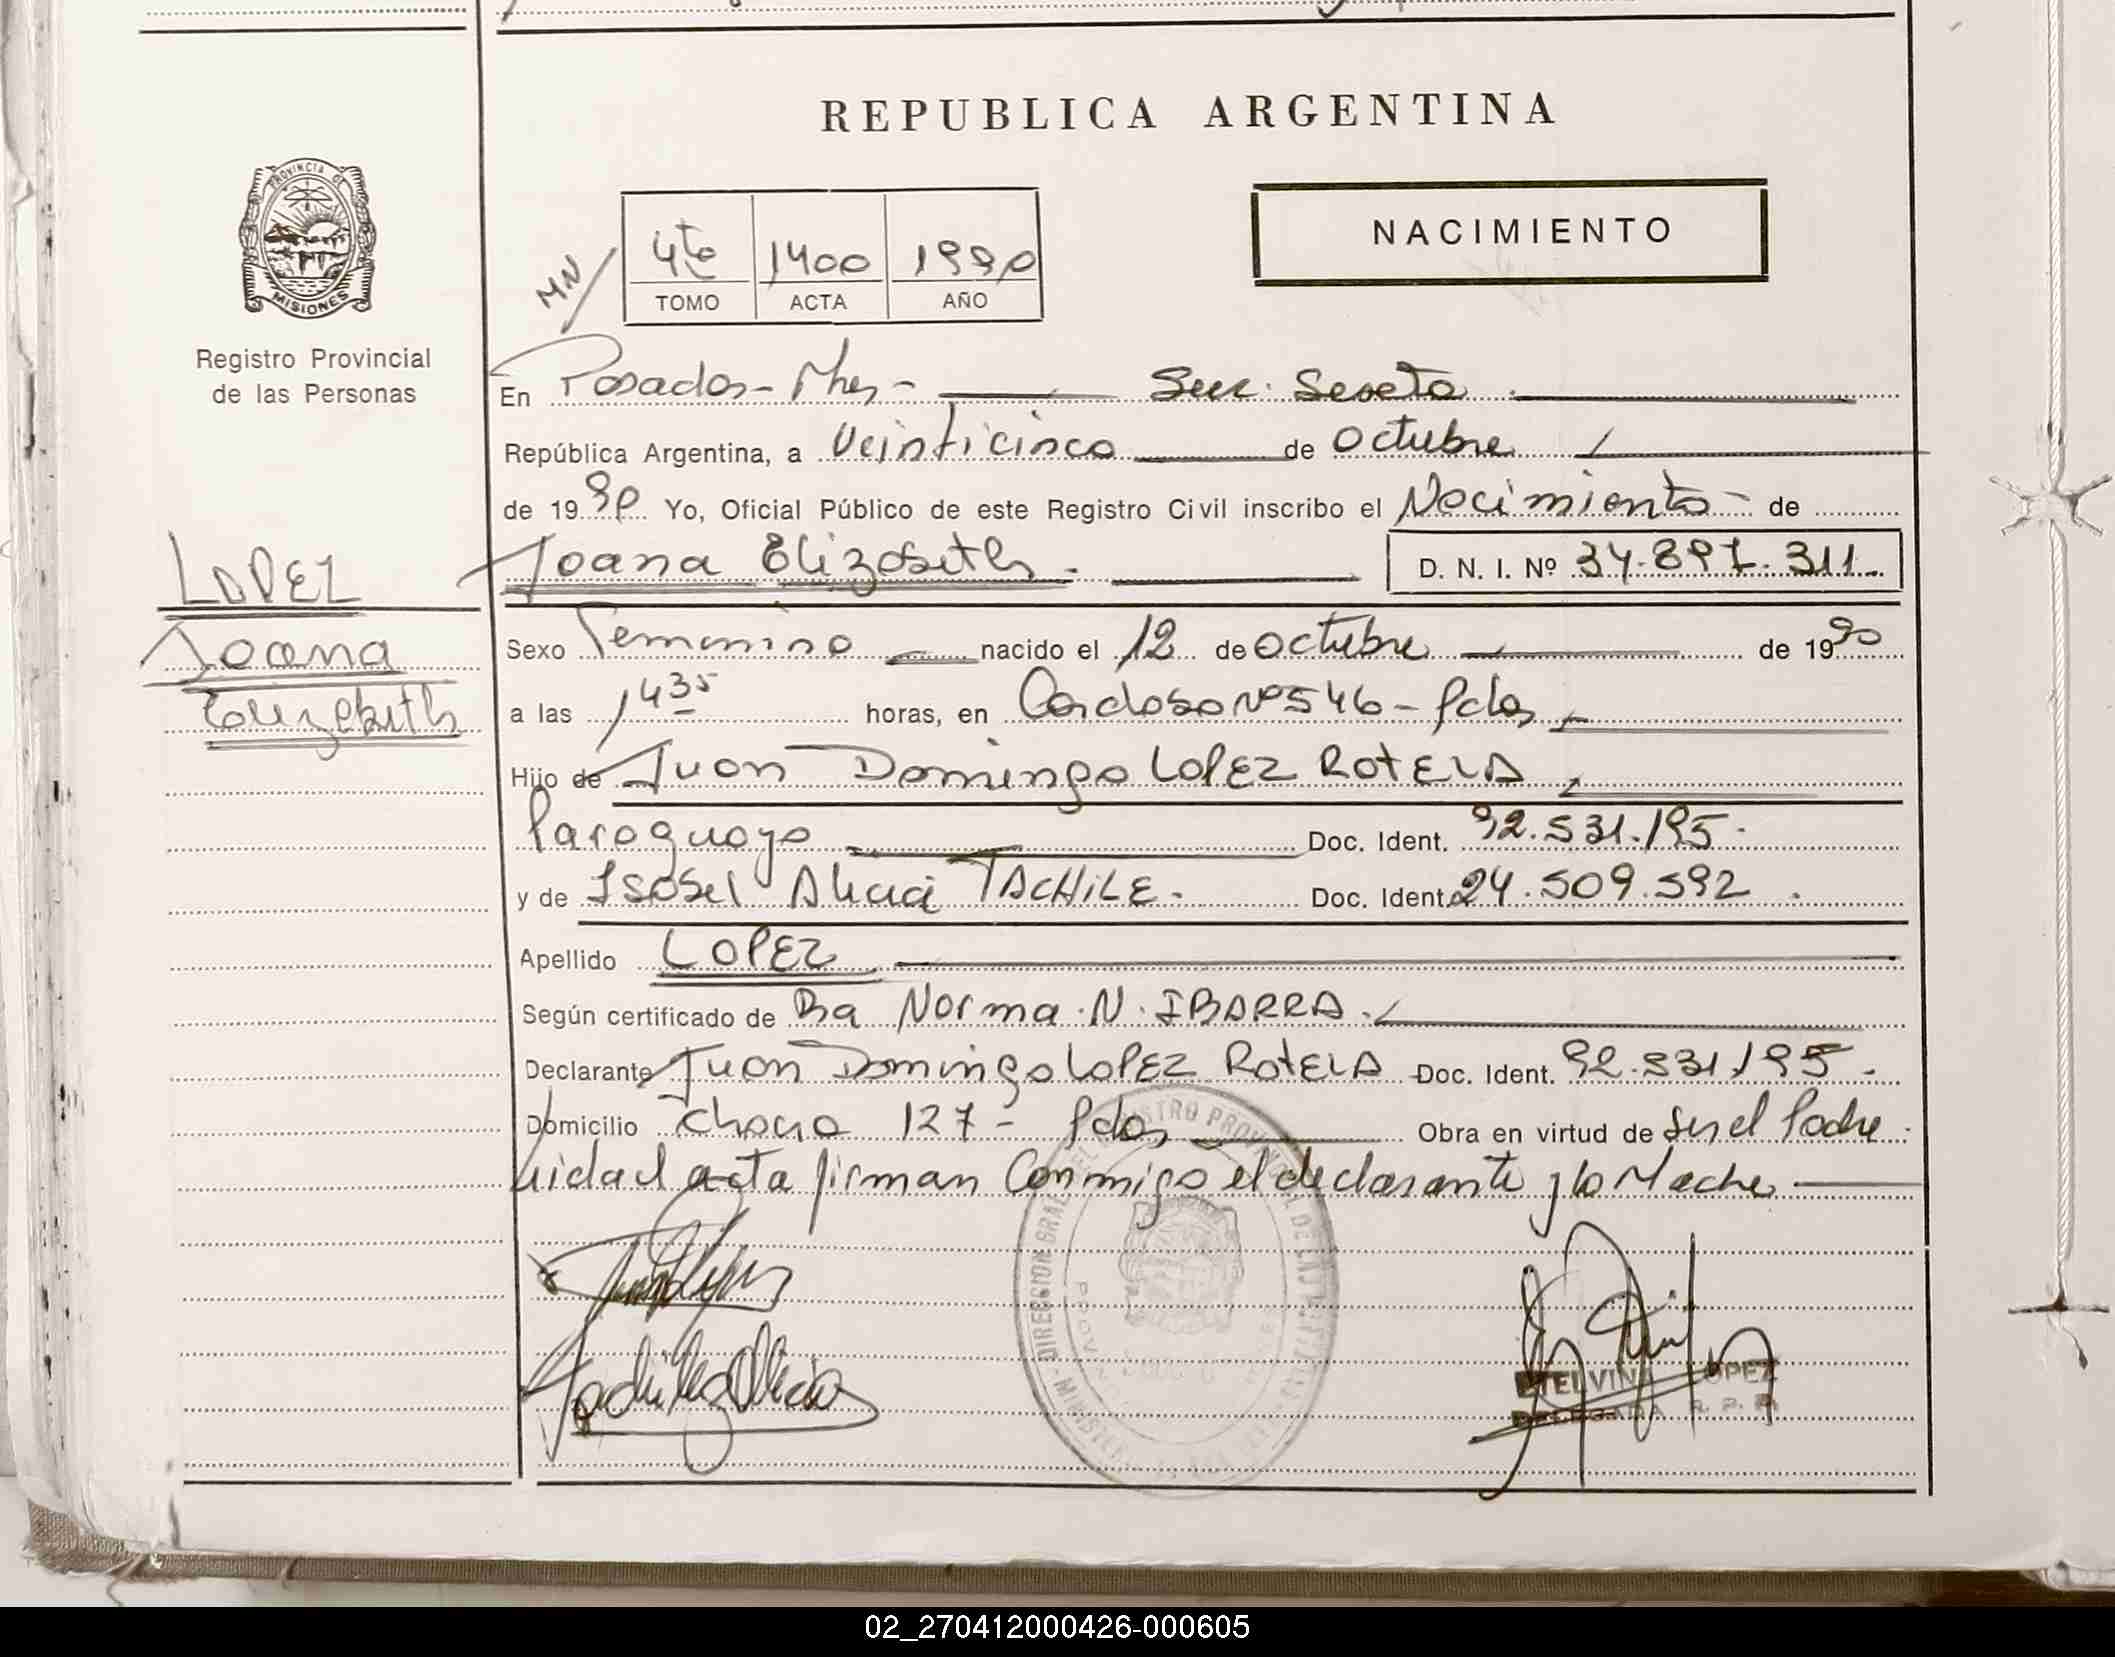 REPUBLICA ARGENTINA
NACIMIENTO
PROVINCIA DE
MISIONES
Registro Provincial
de las Personas
MN
4to 1400 1990
TOMO ACTA AÑO
En Posadas - Mnes - Secc. Sexta
República Argentina, a Veinticinco de Octubre
de 1990 Yo, Oficial Público de este Registro Civil inscribo el Nacimiento - de
Joana Elizabeth - D. N. I. Nº 34.897.311
LOPEZ
Joana
Elizabeth
Sexo Femenino nacido el 12 de Octubre de 1990
a las 1435 horas, en Cardoso Nº 546 - Pdas
Hijo de Juan Domingo LOPEZ ROTELA
Paraguayo Doc. Ident. 92.531.195.
y de Isabel Alicia TACHILE. Doc. Ident. 24.509.592.
Apellido LOPEZ
Según certificado de Dra Norma N. IBARRA.
Declarante Juan Domingo LOPEZ ROTELA Doc. Ident. 92.531.195.
Domicilio Chacra 127 - Pdas Obra en virtud de Ser el Padre
Leida el acta firman Conmigo el declarante y la Madre
ETELVINA LOPEZ
DELEGADA R. P. P.
02_270412000426-000605